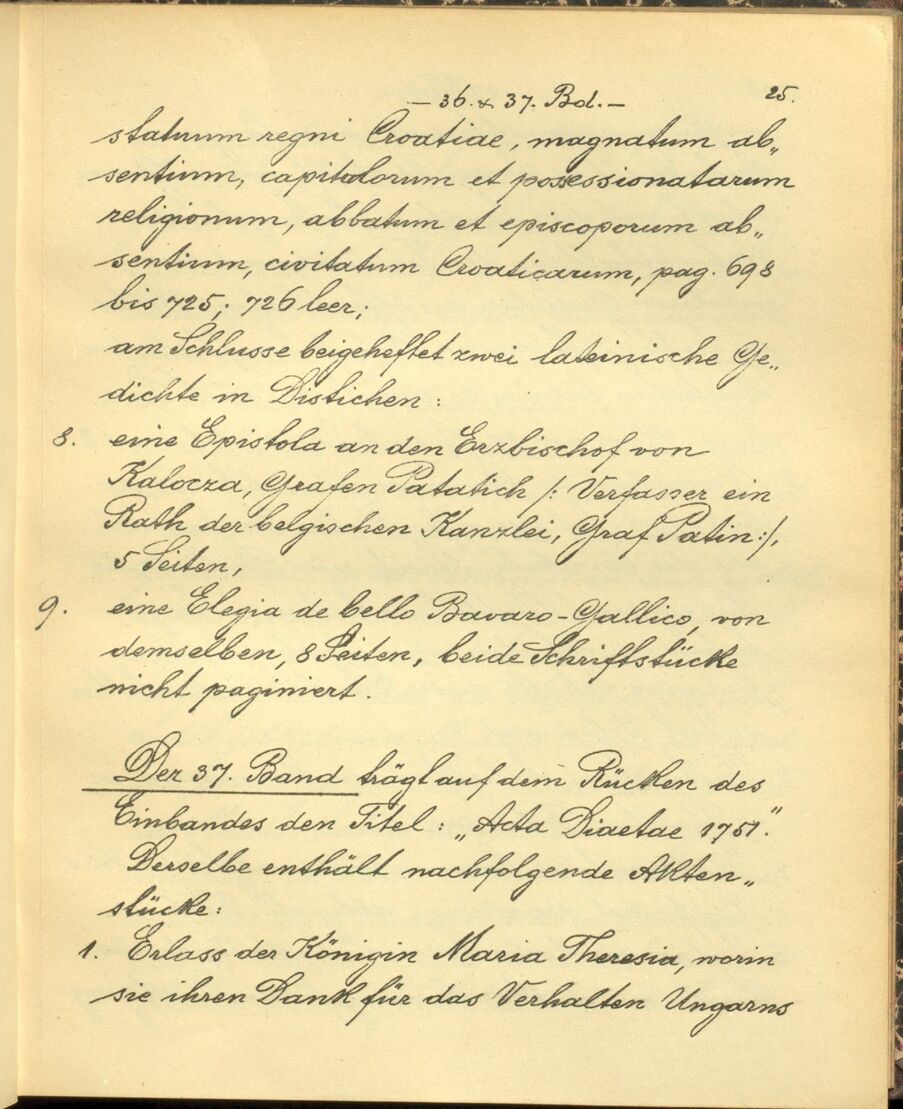 — 36. & 37. Bd. — 25.
statuum regni Croatiae, magnatum ab„
sentium, capitulorum et possessionatarum
religionum, abbatum et episcoporum ab„
sentium, civitatum Croaticarum, pag. 698
bis 725; 726 leer;
am Schlusse beigeheftet zwei lateinische Ge„
dichte in Distichen:
8. eine Epistola an den Erzbischof von
Kalocza, Grafen Patatich /: Verfasser ein
Rath der belgischen Kanzlei, Graf Patin :/,
5 Seiten,
9. eine Elegia de bello Bavaro-Gallico, von
demselben, 8 Seiten, beide Schriftstücke
nicht paginiert.
Der 37. Band trägt auf dem Rücken des
Einbandes den Titel: „Acta Diaetae 1751."
Derselbe enthält nachfolgende Akten„
stücke:
1. Erlass der Königin Maria Theresia, worin
sie ihren Dank für das Verhalten Ungarns